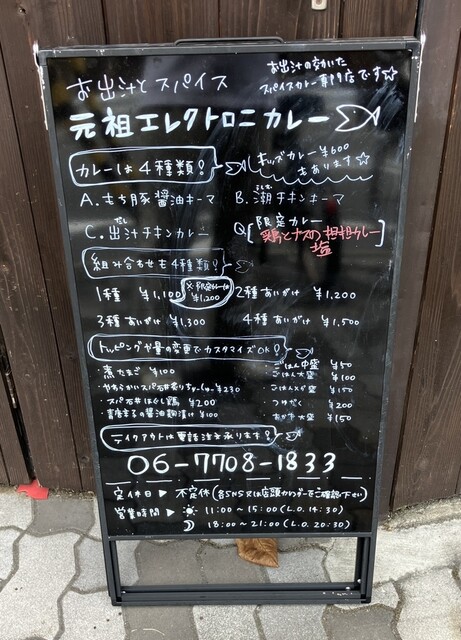 お出汁とスパイス
お出汁の効いた
スパイスカレー専門店です☆
元祖エレクトロニカレー
カレーは4種類!
キッズカレー¥600
もあります☆
A. もち豚醤油キーマ
B. 潮チキンキーマ
C. 出汁チキンカレー
Q 限定カレー
鶏とナスの担担カレー
塩
組み合わせも4種類!
1種 ¥1,100
※限定カレーは
¥1,200
2種あいがけ ¥1,200
3種あいがけ ¥1,300
4種あいがけ ¥1,500
トッピングや量の変更でカスタマイズOK!
煮たまご ¥100
¥230
スパ石井ほぐし鶏 ¥200
醤油麹漬け ¥100
ごはん中盛 ¥50
ごはん大盛 ¥100
ごはん ¥150
つゆだく ¥200
¥150
テイクアウトは電話注文承ります!
06-7708-1833
定休日▶ 不定休(各SNS又は店頭カレンダーをご確認下さい)
営業時間▶ 11:00〜15:00(L.O.14:30)
18:00〜21:00(L.O.20:30)